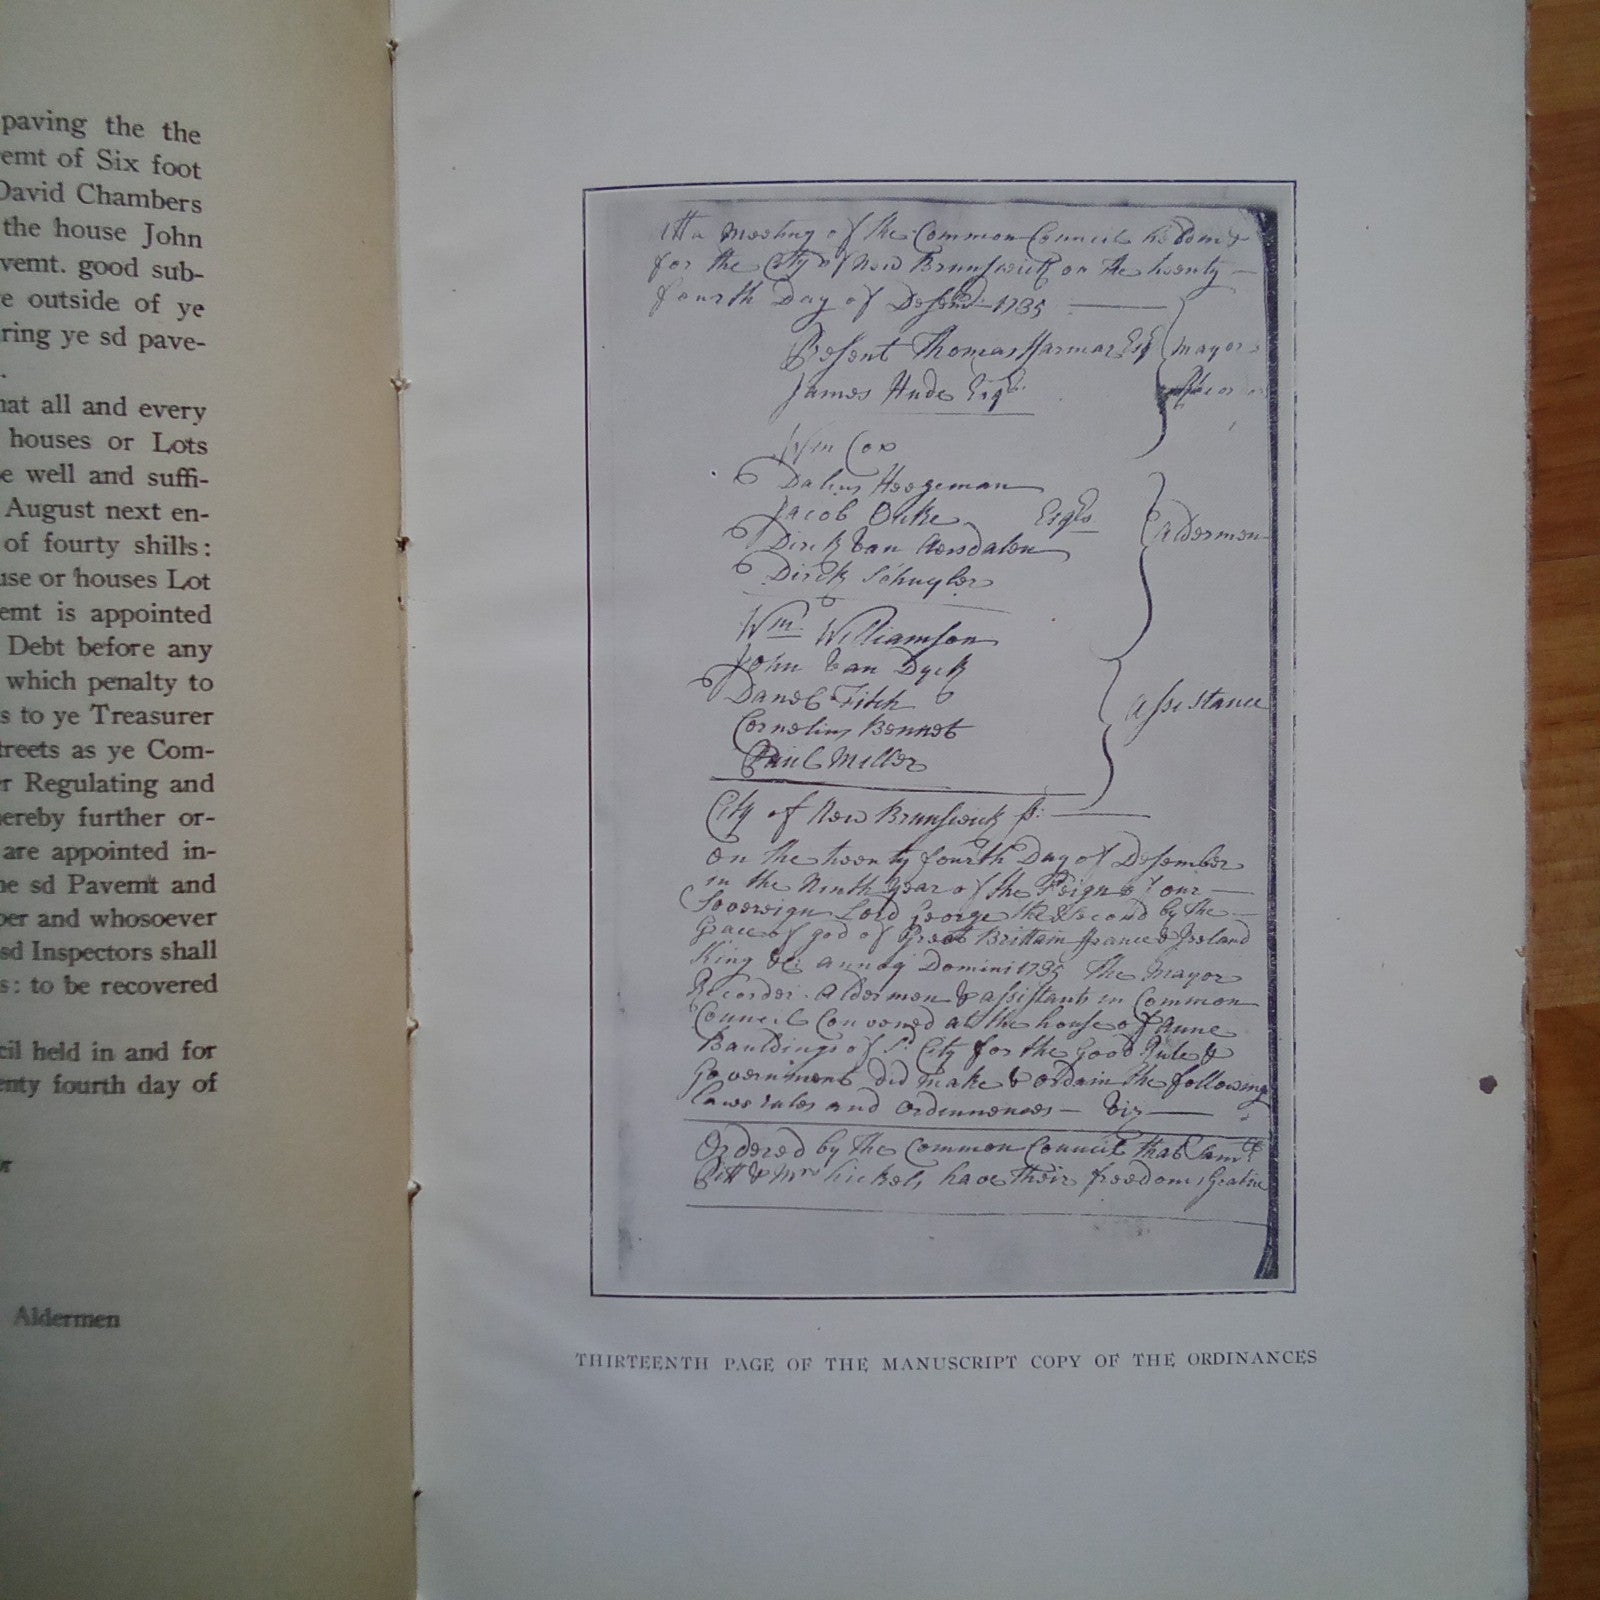 paving the the
emt of Six foot
David Chambers
the house John
vemt. good sub-
e outside of ye
ring ye sd pave-
.
hat all and every
houses or Lots
e well and suffi-
August next en-
of fourty shills:
use or houses Lot
emt is appointed
Debt before any
which penalty to
s to ye Treasurer
treets as ye Com-
r Regulating and
hereby further or-
are appointed in-
he sd Pavemt and
per and whosoever
sd Inspectors shall
s: to be recovered
cil held in and for
enty fourth day of
Aldermen
Att a Meeting of the Common Council held in &
for the City of New Brunswick on the twenty
fourth Day of Desemr 1735
Present Thomas Harmar Esq Mayor
James Hude Esqr
Wm Cox
Dalius Hegeman
Jacob Ouke Esqrs
Dirck Van Aersdalen Aldermen
Dirck Schuyler
Wm. Williamson
John Van Dyck
Daneb Fitch assistance
Cornelius Bennet
Paul Miller
City of New Brunswick ss:
On the twenty fourth Day of Desember
in the Ninth Year of the Reign of our
Sovereign Lord George the Second by the
Grace of god of Great Brittain France & Ireland
King &c annoq Domini 1735 The Mayor
Recorder Aldermen & assistants in Common
Council Convened at the house of Anne
Bauldings of sd City for the Good Rule &
Government did make & ordain the following
Laws rules and ordinnences – Viz
Ordered by the Common Council that Samll
Pitt & Mrs Nickels have their freedoms Gratine
THIRTEENTH PAGE OF THE MANUSCRIPT COPY OF THE ORDINANCES